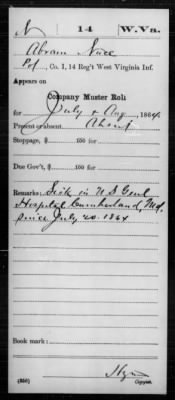 N | 14 | W.Va.
Abram Nuce
Pvt, Co. I, 14 Reg't West Virginia Inf.
Appears on
Company Muster Roll
for July & Aug, 1864.
Present or absent Absent
Stoppage, $ 100 for
Due Gov't, $ 100 for
Remarks: Sick in U S Genl
Hospital Cumberland, Md,
since July 20. 1864
Book mark:
(356)
Copyist.